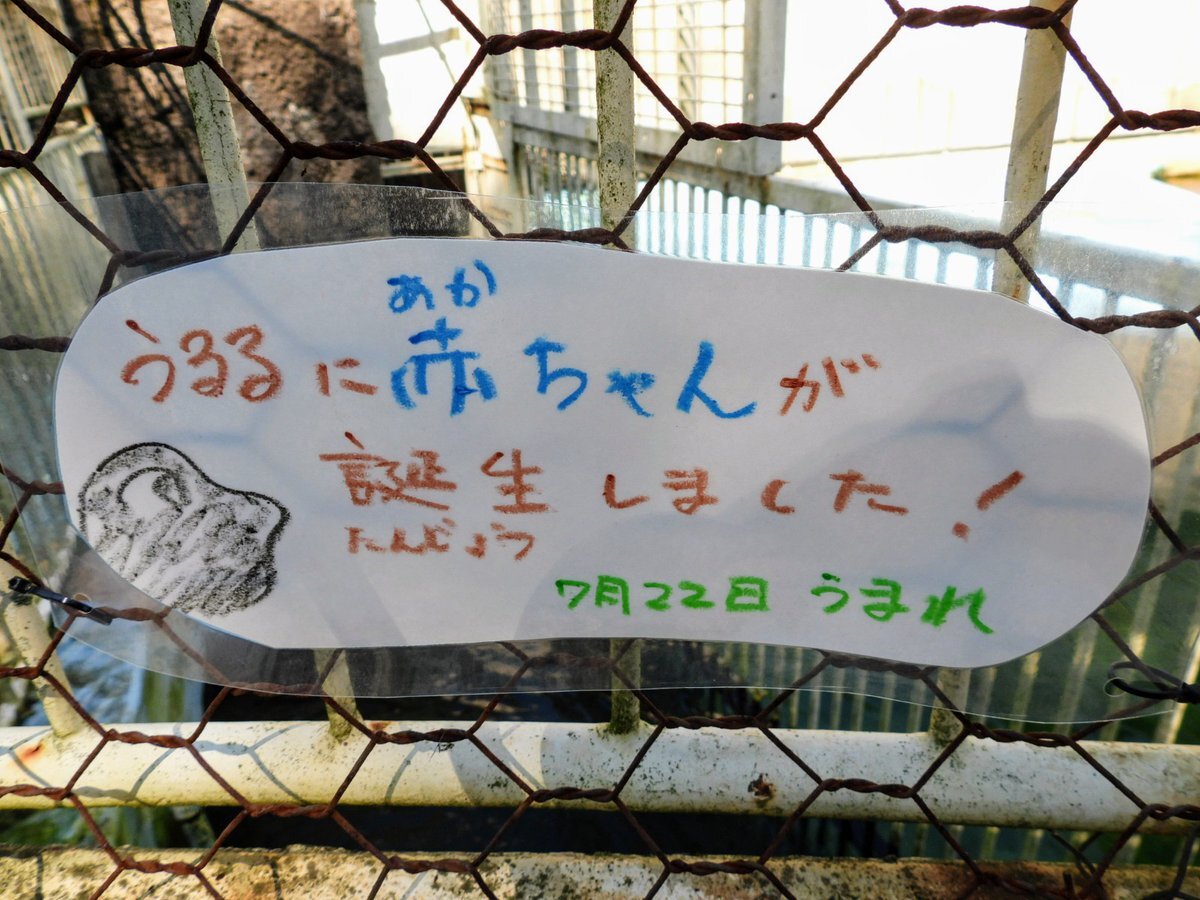 あか
うるるに赤ちゃんが
誕生しました!
たんじょう
7月22日 うまれ